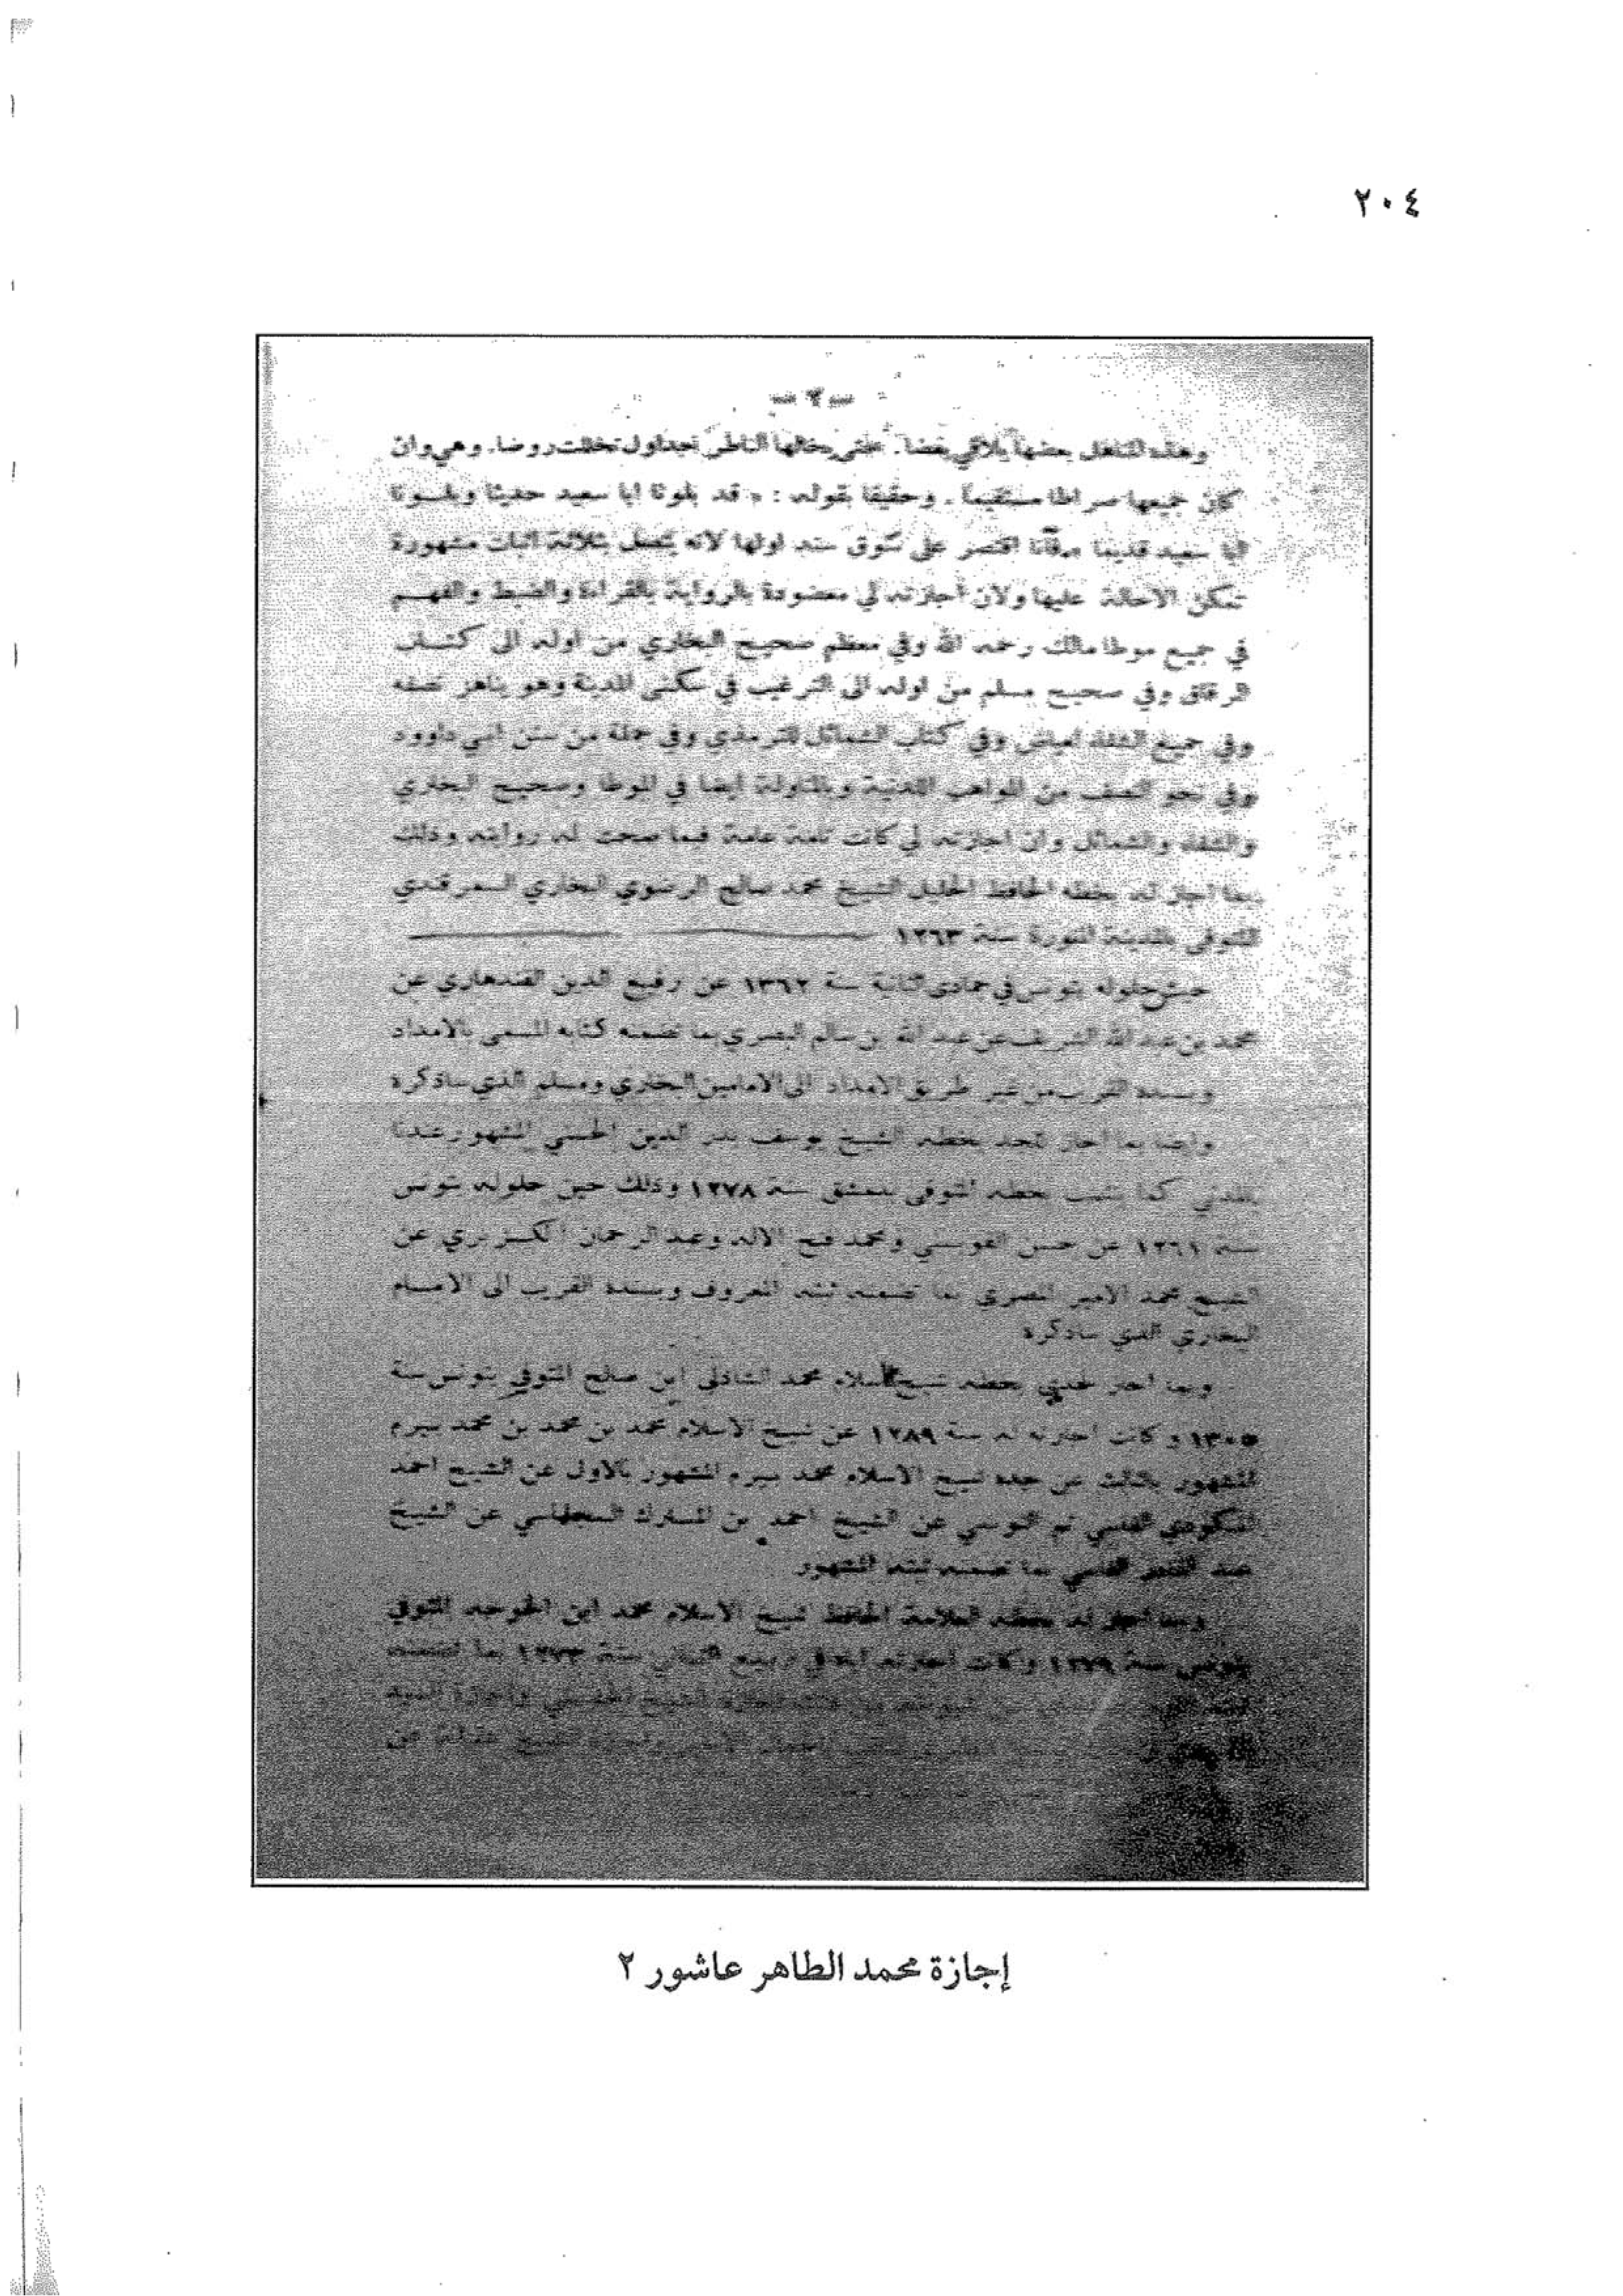 ٢٠٤
— ٢ —
وهذه المناهل بعضها يلاقي بعضا. حتى يخالها الناظر جداول تخللت روضا. وهي وان
كان جميعها صراطا مستقيما. وحقيقا بقوله : « قد بلونا ابا سعيد حديثا وبلونا
ابا سعيد قديما فانا اقتصر على سوق سند اولها لانه يتصل بثلاثة اثبات مشهورة
تمكن الاحالة عليها ولان أجازته لي معضودة بالرواية بالقراءة والضبط والفهم
في جميع موطا مالك رحمه الله وفي معظم صحيح البخاري من اوله الى كتاب
الرقاق وفي صحيح مسلم من اوله الى الترغيب في سكنى المدينة وهو يناهز نصفه
وفي جميع الشفاء لعياض وفي كتاب الشمائل للترمذي وفي جملة من سنن ابي داوود
وفي نحو النصف من المواهب اللدنية وبالمناولة ايضا في الموطا وصحيح البخاري
والشفاء والشمائل وان اجازته لي كانت تامة عامة فيما صحت له روايته وذلك
بما اجاز له بخطه الحافظ الجليل الشيخ محمد صالح الرضوي البخاري السمرقندي
المتوفى بالمدينة المنورة سنة ١٢٦٣
حين حلوله بتونس في جمادى الثانية سنة عن رفيع الدين القندهاري عن
محمد بن عبد الله الشريف عن عبد الله بن سالم البصري بما تضمنه كتابه المسمى بالامداد
وبسنده القريب من غير طريق الامداد الى الامامين البخاري ومسلم الذي ساذكره
وايضا بما اجاز لجده بخطه الشيخ يوسف بدر الدين الحسني المشهور عندنا
بالمدني كما بخطه المتوفى بدمشق سنة ١٢٧٨ وذلك حين حلوله بتونس
سنة ١٢٦١ عن حسن القويسني ومحمد فتح الاله وعبد الرحمان الكزبري عن
الشيخ محمد الامير المصري بما تضمنه ثبته المعروف وبسنده القريب الى الامام
البخاري الذي ساذكره
وبما اجاز لجدي بخطه شيخ الاسلام محمد الشاذلي ابن صالح المتوفى بتونس سنة
١٣٠٨ وكانت اجازته له سنة ١٢٨٩ عن شيخ الاسلام محمد بن محمد بن محمد بيرم
المشهور بالثالث عن جده شيخ الاسلام محمد بيرم المشهور بالاول عن الشيخ احمد
المكودي الفاسي ثم التونسي عن الشيخ احمد بن المبارك السجلماسي عن الشيخ
عبد القادر الفاسي بما تضمنه ثبته المشهور
وبما اجاز له بخطه العلامة الحافظ شيخ الاسلام محمد ابن الخوجه المتوفى
بتونس سنة ١٢٧٩ وكانت اجازته اياه في ربيع الثاني سنة ١٢٧٣ بما تضمنه
إجازة محمد الطاهر عاشور ٢